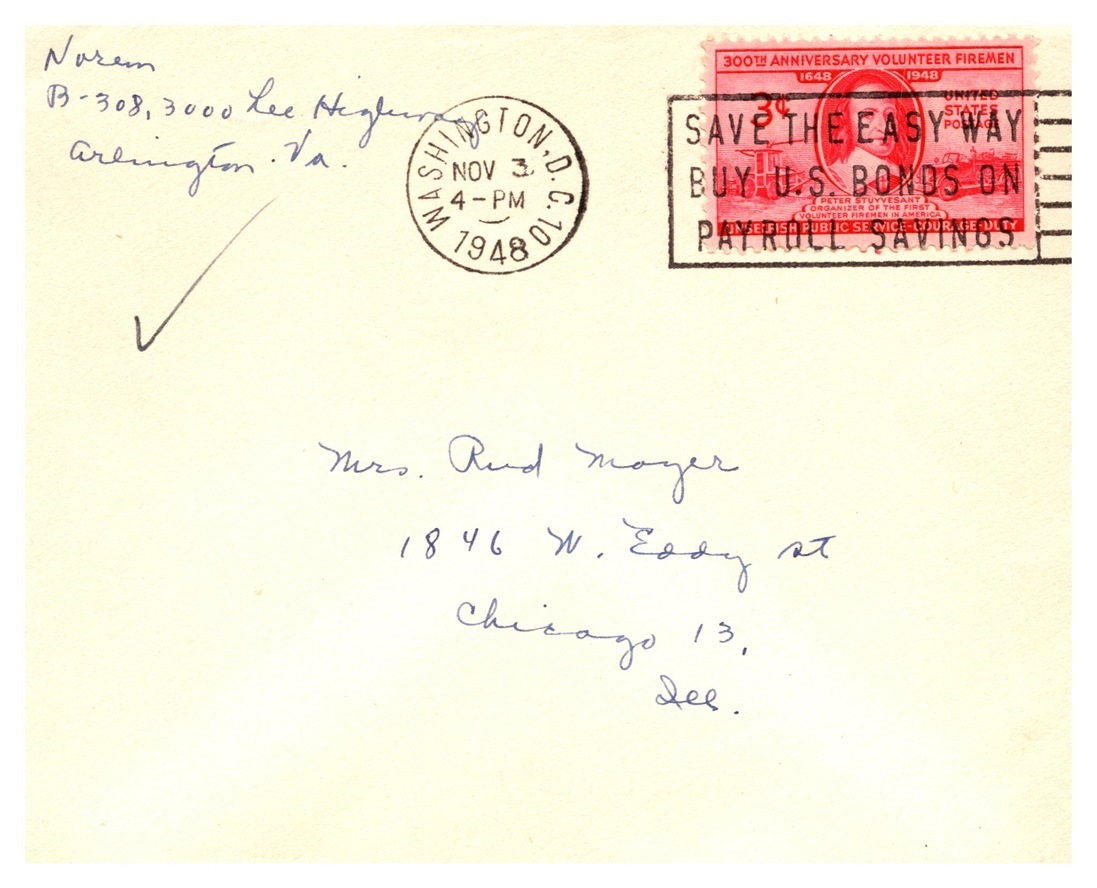 Norem
B-308, 3000 Lee Highway
Arlington. Va.
WASHINGTON, D.C. 10
NOV 3
4-PM
1948
300TH ANNIVERSARY VOLUNTEER FIREMEN
1648 1948
3¢
UNITED
STATES
POSTAGE
PETER STUYVESANT
ORGANIZER OF THE FIRST
VOLUNTEER FIREMEN IN AMERICA
UNSELFISH PUBLIC SERVICE-COURAGE-DUTY
SAVE THE EASY WAY
BUY U.S. BONDS ON
PAYROLL SAVINGS
Mrs. Rud Mayer
1846 W. Eddy st
Chicago 13,
Ill.